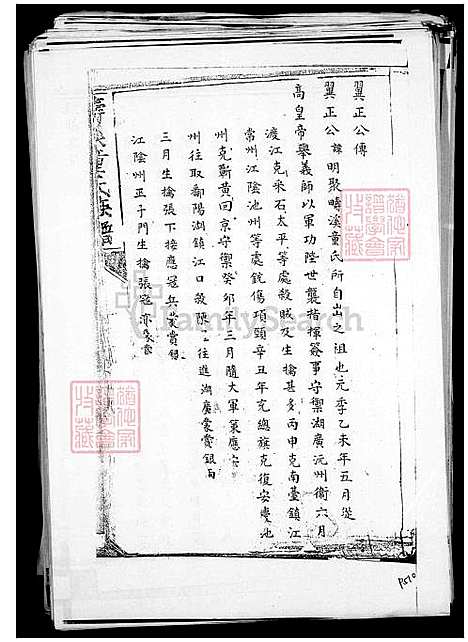 翼正公傳
翼正公諱明聚時溪童氏所自出之祖也元季乙未年五月從
高皇帝舉義師以軍功陞世襲指揮簽事守禦湖廣沅州衛六月
渡江克采石太平等處殺賊及生擒甚多丙申克南臺鎮江
常州江陰池州等處銃傷項頸辛丑年充總旗克復安慶池
州克蘄黃回京守禦癸卯年三月隨大軍策應安
州往取鄱陽湖鎮江口殺陳 往進湖廣蒙賞銀兩
三月生擒張下接應冠兵蒙賞銀
江陰州正子門生擒張冠亦蒙賞
童氏族譜
FamilySearch